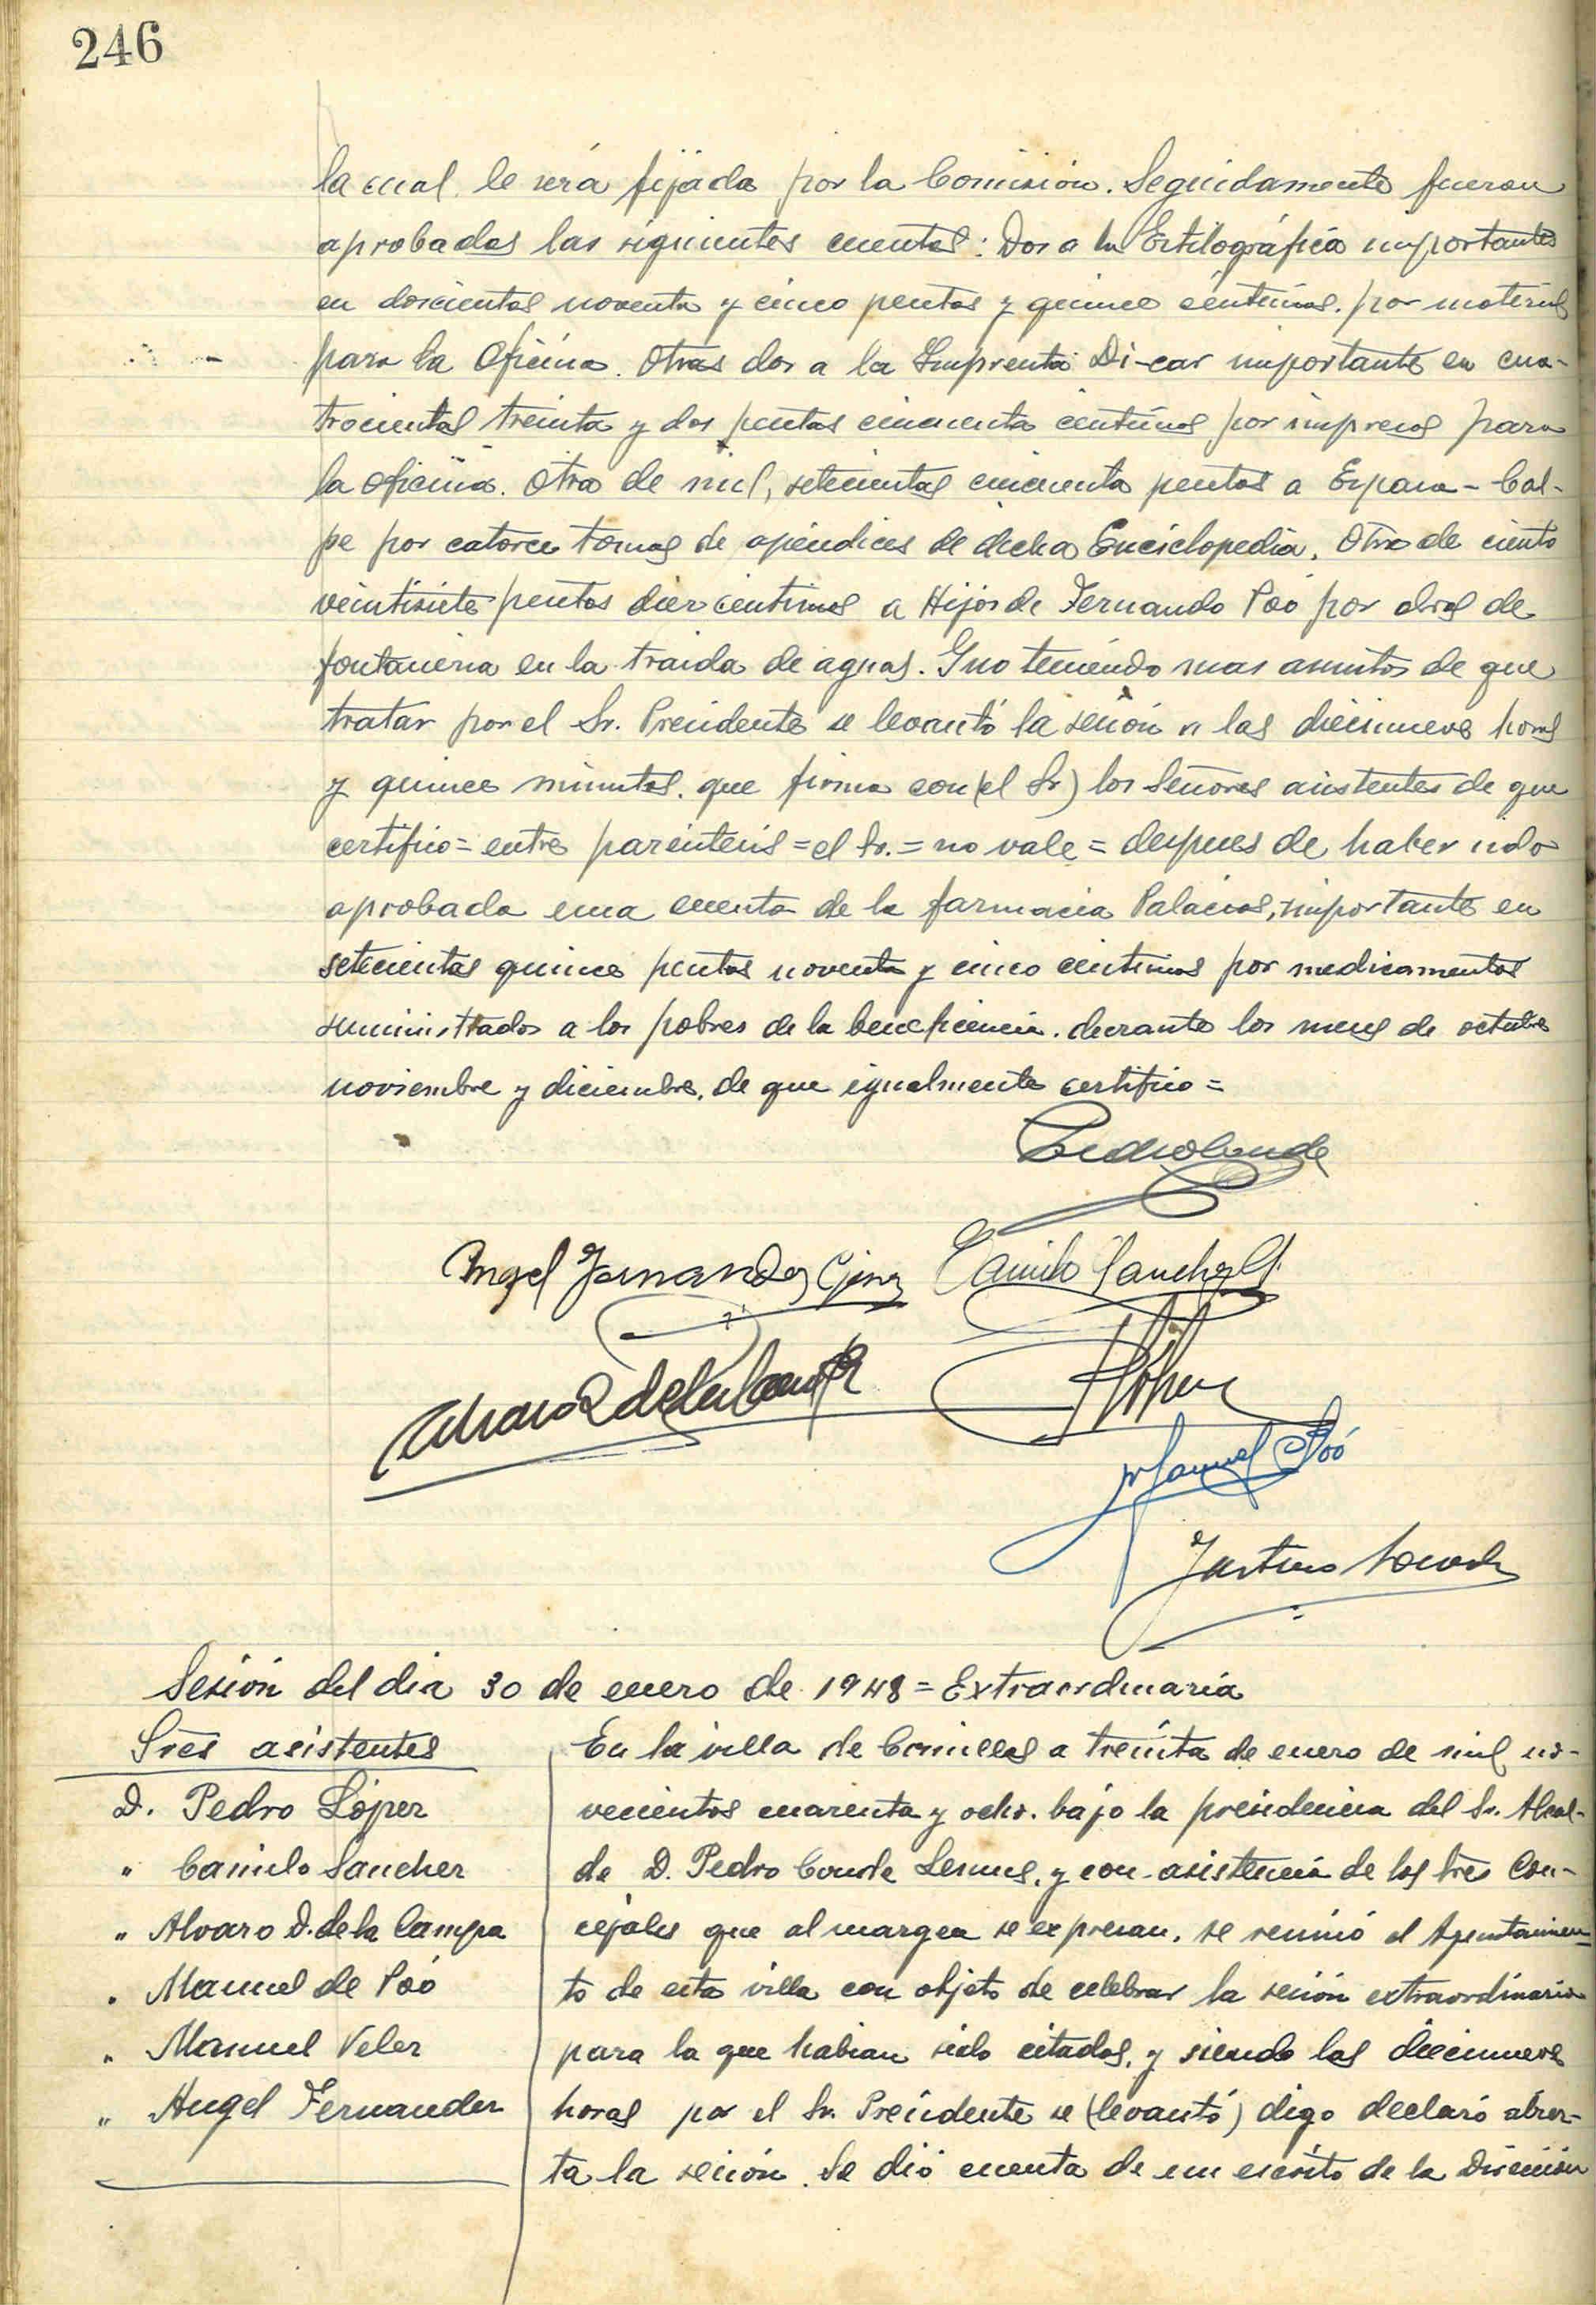 246
la cual le será fijada por la Comisión. Seguidamente fueron
aprobadas las siguientes cuentas: Dos a la Estilográfica importantes
en doscientas noventa y cinco pesetas y quince céntimos. por material
para la Oficina. Otras dos a la Imprenta Di-car importante en cua-
trocientas treinta y dos pesetas cincuenta centimos por impresos para
la oficina. Otra de mil, setecientas cincuenta pesetas a Espasa-Cal-
pe por catorce tomos de apéndices de dicha Enciclopedia. Otra de ciento
veintisiete pesetas diez centimos a Hijos de Fernando Poó por obras de
fontaneria en la traida de aguas. Y no teniendo mas asuntos de que
tratar por el Sr. Presidente se levantó la sesión a las diecinueve horas
y quince minutos. que firma con (el Sr) los Señores asistentes de que
certifico = entre parentesis = el Sr. = no vale = despues de haber sido
aprobada una cuenta de la farmacia Palacios, importante en
setecientas quince pesetas noventa y cinco centimos por medicamentos
suministrados a los pobres de la beneficencia. durante los meses de octubre
noviembre y diciembre. de que igualmente certifico =
Pedro Conde
Angel Fernandez Camilo Sanchez
Alvaro D de la Campa
Manuel Poó
Justino
Sesión del dia 30 de enero de 1948 = Extraordinaria
Sres asistentes
D. Pedro López
" Camilo Sanchez
" Alvaro D. de la Campa
" Manuel de Poó
" Manuel Velez
" Angel Fernandez
En la villa de Comillas a treinta de enero de mil no-
vecientos cuarenta y ocho. bajo la presidencia del Sr. Alcal-
de D. Pedro Conde Lemus, y con asistencia de los Sres Con-
cejales que al margen se expresan. se reunió el Ayuntamien-
to de esta villa con objeto de celebrar la sesión extraordinaria
para la que habian sido citados, y siendo las diecinueve
horas por el Sr. Presidente se (levantó) digo declaró abier-
ta la sesión. Se dió cuenta de un escrito de la Dirección